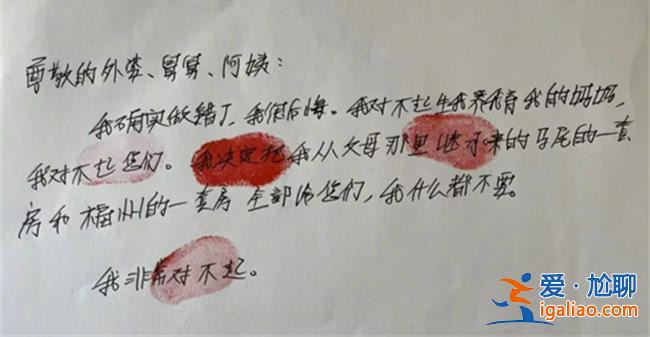 尊敬的外婆、舅舅、阿姨：
我确实做错了，我很后悔。我对不起生我养育我的妈妈，
我对不起您们。我决定把我从父母那里继承来的马尾的一套
房和福州的一套房全部给您们，我什么都不要。
我非常对不起。
爱·尬聊
igaliao.com